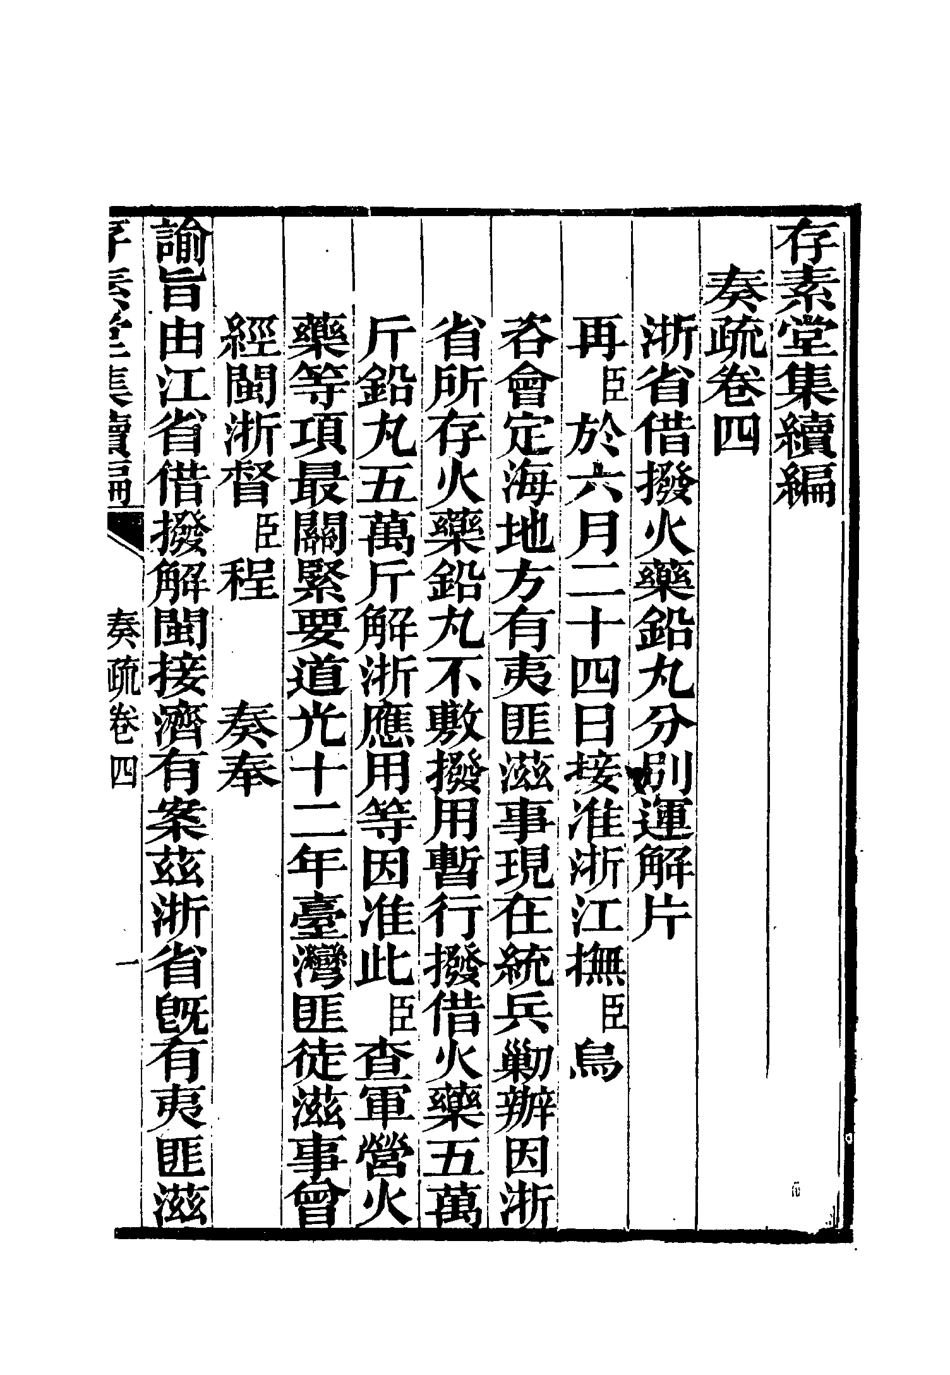 存素堂集續編
奏疏卷四
浙省借撥火藥鉛丸分別運解片
再臣於六月二十四日接准浙江撫臣烏
咨會定海地方有夷匪滋事現在統兵勦辦因浙
省所存火藥鉛丸不敷撥用暫行撥借火藥五萬
斤鉛丸五萬斤解浙應用等因准此臣查軍營火
藥等項最關緊要道光十二年臺灣匪徒滋事曾
經閩浙督臣程　奏奉
諭旨由江省借撥解閩接濟有案茲浙省旣有夷匪滋
存素堂集續編　奏疏卷四　一